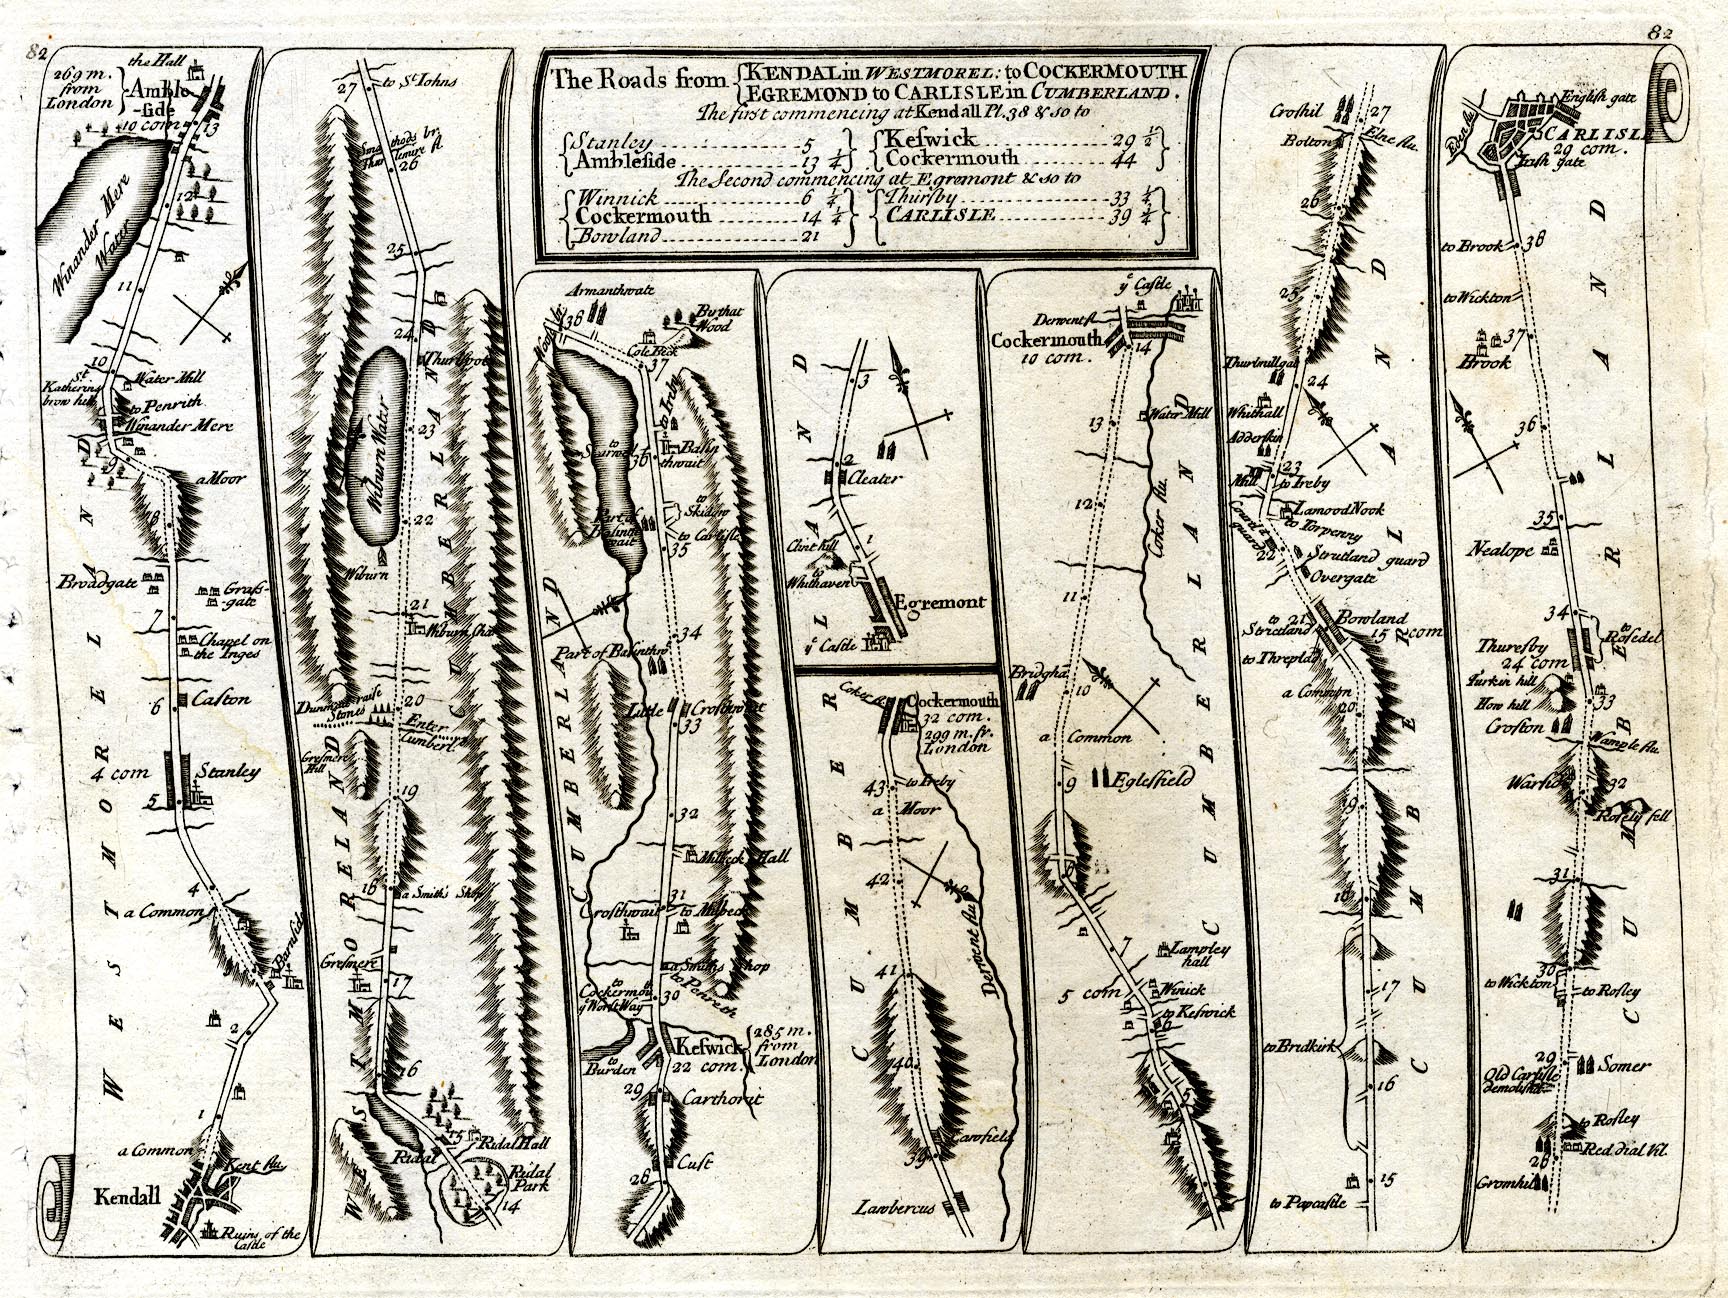 82
82
The Roads from { KENDAL in WESTMOREL: to COCKERMOUTH
EGREMOND to CARLISLE in CUMBERLAND.
The first commencing at Kendall Pl. 38 & so to
Stanley 5
Ambleside 13 1/4
Keswick 29 1/2
Cockermouth 44
The Second commencing at Egremont & so to
Winnick 6 1/4
Cockermouth 14 1/4
Bowland 21
Thursby 33 1/4
CARLISLE 39 1/4
the Hall
269 m.
from
London
Amble
-side
10 com
13
Winander Mere
Water
12
11
10
St
Katherins
brow hill
Water Mill
to Penrith
Winander Mere
9
a Moor
8
Broadgate
Grass-
gate
7
Chapel on
the Inges
6
Caston
4 com
Stanley
5
4
a Common
Burnside
2
1
a Common
Kent flu.
Kendall
Ruins of the
Castle
WESTMORELAND
27
to St Iohns
26
25
24
Thurlspot
Wiburn Water
23
22
Wiburn
21
20
Dunmail raise
Stones
Enter
Cumberl.
Gresmere
Hill
19
18
a Smith's Shop
Gresmere
17
16
15
Ridal Hall
Ridal
Ridal
Park
14
WESTMORELAND
CUMBERLAND
Armanthwate
38
Birthat
Wood
Cole Beck
37
to Ireby
36
Bassn
thwait
to
Skidow
to Carlisle
35
34
Part of Basinthw
Little Crosthwait
33
32
Milbeck Hall
31
Crosthwait
to Milbeck
a Smiths Shop
to
Cockermou
ye Worst Way
30
to Penrith
Keswick
22 com.
285 m.
from
London
to
Burden
29
Carthorit
Cust
28
CUMBERLAND
3
2
Cleater
1
Clint hill
to
Whithaven
Egremont
ye Castle
Coker
Cockermouth
32 com.
299 m. fr.
London
43
to Ireby
a Moor
42
Derwent flu.
41
40
39
Lawbercus
CUMBERLAND
ye Castle
Derwent fl.
Cockermouth
10 com.
14
13
Water Mill
12
Coker flu.
11
Bridgha
10
a Common
9
Eglesfield
8
7
Lampley
hall
5 com
Winick
to Keswick
6
5
CUMBERLAND
Croshil
27
Bolton
Elne flu.
26
25
Thurlmillgat
24
Whithall
Adderskin
23
Mill
to Ireby
Lamood Nook
to Torpenny
22
Strutland guard
Overgate
to
Strictland
21
Bowland
15 com
to Threpland
a Common
20
19
18
17
to Bridkirk
16
15
to Papcastle
CUMBERLAND
English gate
Eden flu.
CARLISLE
29 com.
Irish gate
to Brook
38
to Wickton
37
Brook
36
35
Nealope
34
to
Rosedel
Thuresby
24 com
Turkin hill
How hill
33
Croston
Wample flu.
32
Rosely fell
31
30
to Wickton
to Rosley
29
Somer
Old Carlisle
demolisht
to Rosley
Red dial Vil.
28
Gromhil
CUMBERLAND